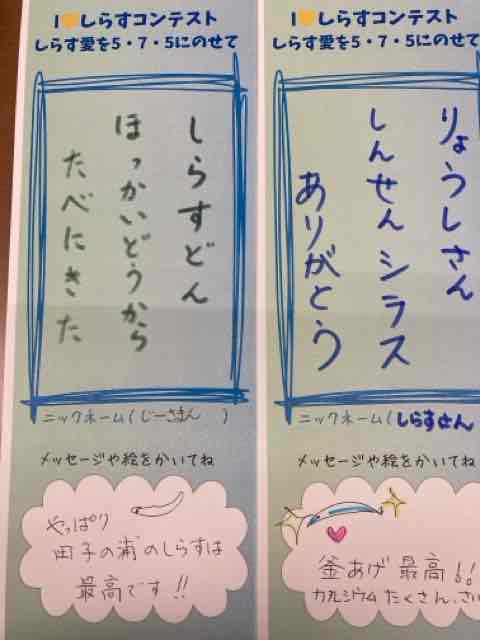 I💛しらすコンテスト
しらす愛を5・7・5にのせて
しらすどん
ほっかいどうから
たべにきた
ニックネーム(じーさまん)
メッセージや絵をかいてね
やっぱり
田子の浦のしらすは
最高です!!
I💛しらすコンテスト
しらす愛を5・7・5にのせて
りょうしさん
しんせんシラス
ありがとう
ニックネーム(しらすさん
メッセージや絵をかいてね
釜あげ最高!!
カルシウムたくさん、